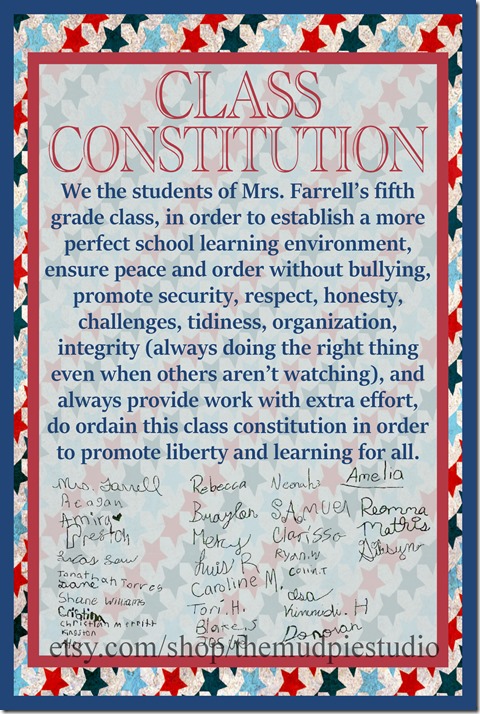 CLASS
CONSTITUTION
We the students of Mrs. Farrell's fifth
grade class, in order to establish a more
perfect school learning environment,
ensure peace and order without bullying,
promote security, respect, honesty,
challenges, tidiness, organization,
integrity (always doing the right thing
even when others aren't watching), and
always provide work with extra effort,
do ordain this class constitution in order
to promote liberty and learning for all.
Mrs. Farrell
Reagan
Amira
Preston
Lucas
Jonathan Torres
Shane Williams
Cristina
Christian Merritt
Rebecca
Braylon
Mercy
Luis R
Caroline M.
Tori. H.
Blake.S
SAMUEL
Clarissa
Ryan.W
Colin.T
Isa
Kennedi. H
Donovan
Amelia
Reonna
Mathis
etsy.com/shop/themudpiestudio